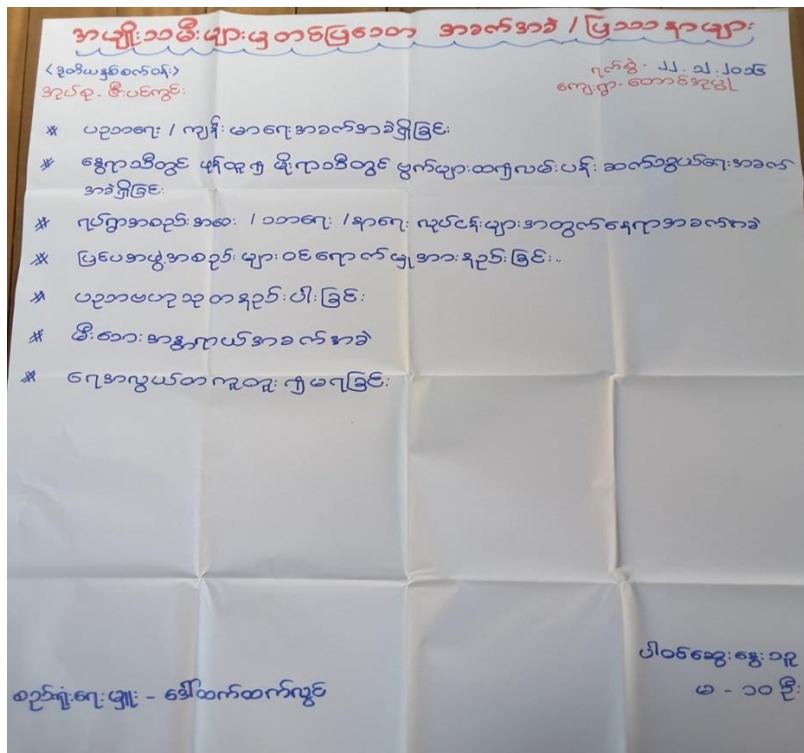 အမျိုးသမီးများမှတင်ပြသော အခက်အခဲ / ပြဿနာများ
<ဒုတိယနှစ်စက်ဝန်း>
ရက်စွဲ - ၂၂.၁.၂၀၁၆
အုပ်စု - မီးပင်ကွင်း
ကျေးရွာ - တောင်အုမ္မူ
* ပညာရေး / ကျန်းမာရေးအခက်အခဲရှိခြင်း
* နွေရာသီတွင် ဖုန်ထူ၍ မိုးရာသီတွင် ဗွက်များထ၍လမ်းပန်း ဆက်သွယ်ရေးအခက်
အခဲရှိခြင်း
* ရပ်ရွာအစည်းအဝေး / သာရေး / နာရေး လုပ်ငန်းများအတွက်နေရာအခက်အခဲ
* ပြင်ပအဖွဲ့အစည်းများဝင်ရောက်မှုအားနည်းခြင်း
* ပညာဗဟုသုတနည်းပါးခြင်း
* မီးဘေးအန္တရာယ်အခက်အခဲ
* ရေအလွယ်တကူတူး၍မရခြင်း
ပါဝင်ဆွေးနွေးသူ
စည်းရုံးရေးမှူး - ဒေါ်ထက်ထက်လွင်
မ - ၁၀ ဦး